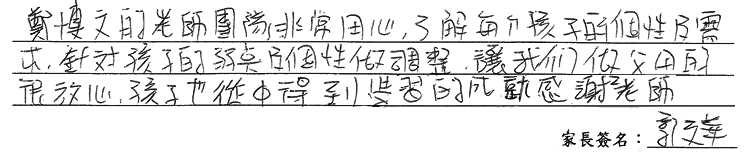 鄭博文的老師團隊非常用心,了解每個孩子的個性及需
求,針對孩子的弱點及個性做調整,讓我们做父母的
很放心,孩子也從中得到學習的成就感謝老師
家長簽名:郭文華